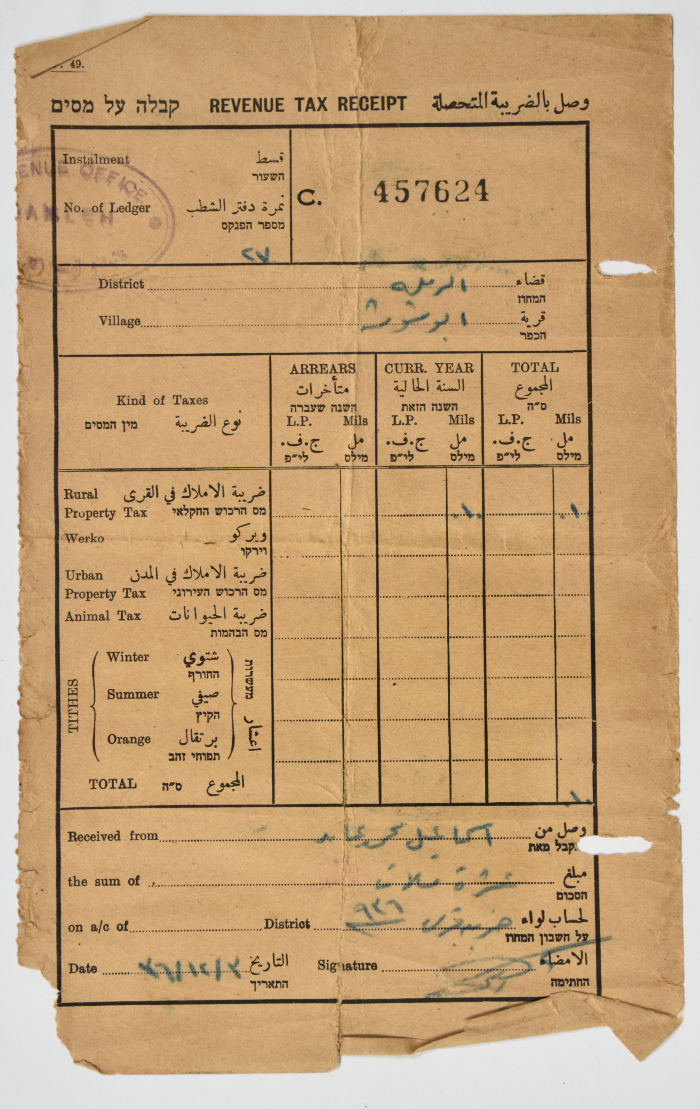 . 49.
קבלה על מסים REVENUE TAX RECEIPT وصل بالضريبة المتحصلة
Instalment قسط
השעור
No. of Ledger نمرة دفتر الشطب
מספר הפנקס
٢٧
C. 457624
REVENUE OFFICE
RAMLEH
District الرملة قضاء
המחוז
Village ابو شوشة قرية
הכפר
Kind of Taxes
מין המסים نوع الضريبة
ARREARS CURR. YEAR TOTAL
متأخرات السنة الحالية المجموع
השנה שעברה השנה הזאת ס״ה
L.P. Mils L.P. Mils L.P. Mils
ج.ف. مل ج.ف. مل ج.ف. مل
לי״פ מילס לי״פ מילס לי״פ מילס
Rural ضريبة الاملاك في القرى
Property Tax מס הרכוש החקלאי ٠١٠ ٠١٠
Werko ويركو
וירקו
Urban ضريبة الاملاك في المدن
Property Tax מס הרכוש העירוני
Animal Tax ضريبة الحيوانات
מס הבהמות
TITHES מעשרות اعشار
Winter شتوي
החורף
Summer صيفي
הקיץ
Orange برتقال
תפוחי זהב
TOTAL ס״ה المجموع ٠١٠
Received from اسماعيل وصل من
קבל מאת
the sum of عشرة ملات مبلغ
הסכום
on a/c of District ٩٣٦ لحساب لواء
על חשבון המחוז
Date ٣٦/١٢/٢ التاريخ Signature الامضاء
התאריך החתימה